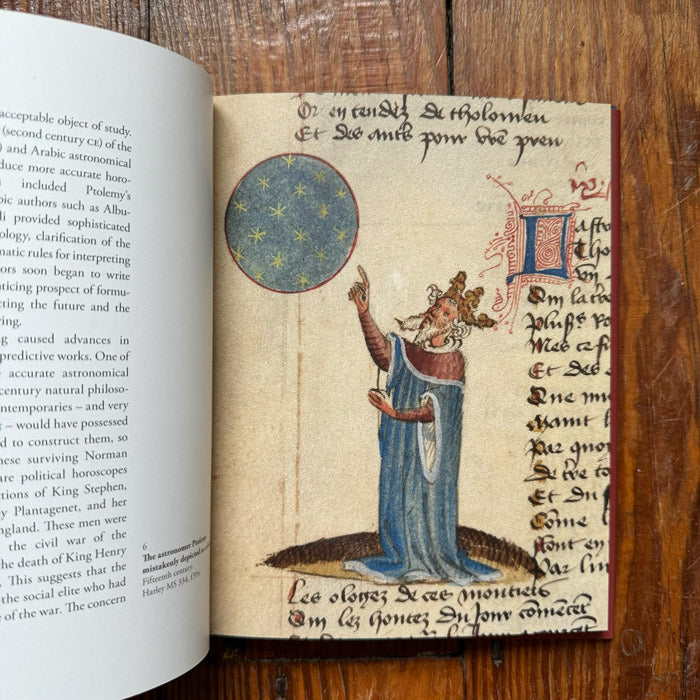 acceptable object of study.
(second century CE) of the
) and Arabic astronomical
duce more accurate horo-
s included Ptolemy's
bic authors such as Albu-
li provided sophisticated
ology, clarification of the
matic rules for interpreting
ors soon began to write
nticing prospect of formu-
cting the future and the
ring.
g caused advances in
predictive works. One of
accurate astronomical
century natural philoso-
ntemporaries – and very
t – would have possessed
d to construct them, so
nese surviving Norman
are political horoscopes
ctions of King Stephen,
y Plantagenet, and her
ngland. These men were
the civil war of the
the death of King Henry
. This suggests that the
the social elite who had
e of the war. The concern
6
The astronomer Ptolemy
mistakenly depicted as
Fifteenth century.
Harley MS 334, f.95v.
Or en tendez de tholomeu
Et des ants pour vre preu
Om la
Pluss
Mes ce
Et des
Que
Par quoy
Et du
Come
Font
Par
Les oloyez de ces montiels
Om lez hontez du Jour comencer